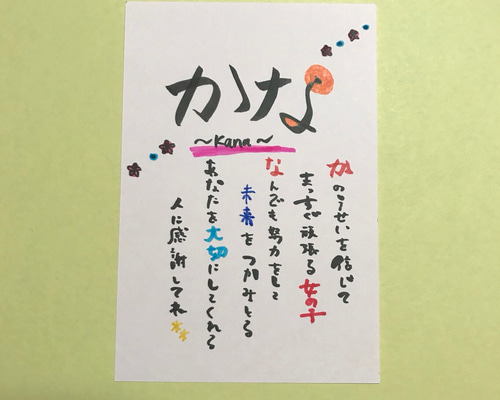 かな
～Kana～
かのうせいを信じて
まっすぐ頑張る女の子
なんでも努力をして
未来をつかみとる
あなたを大切にしてくれる
人に感謝してね